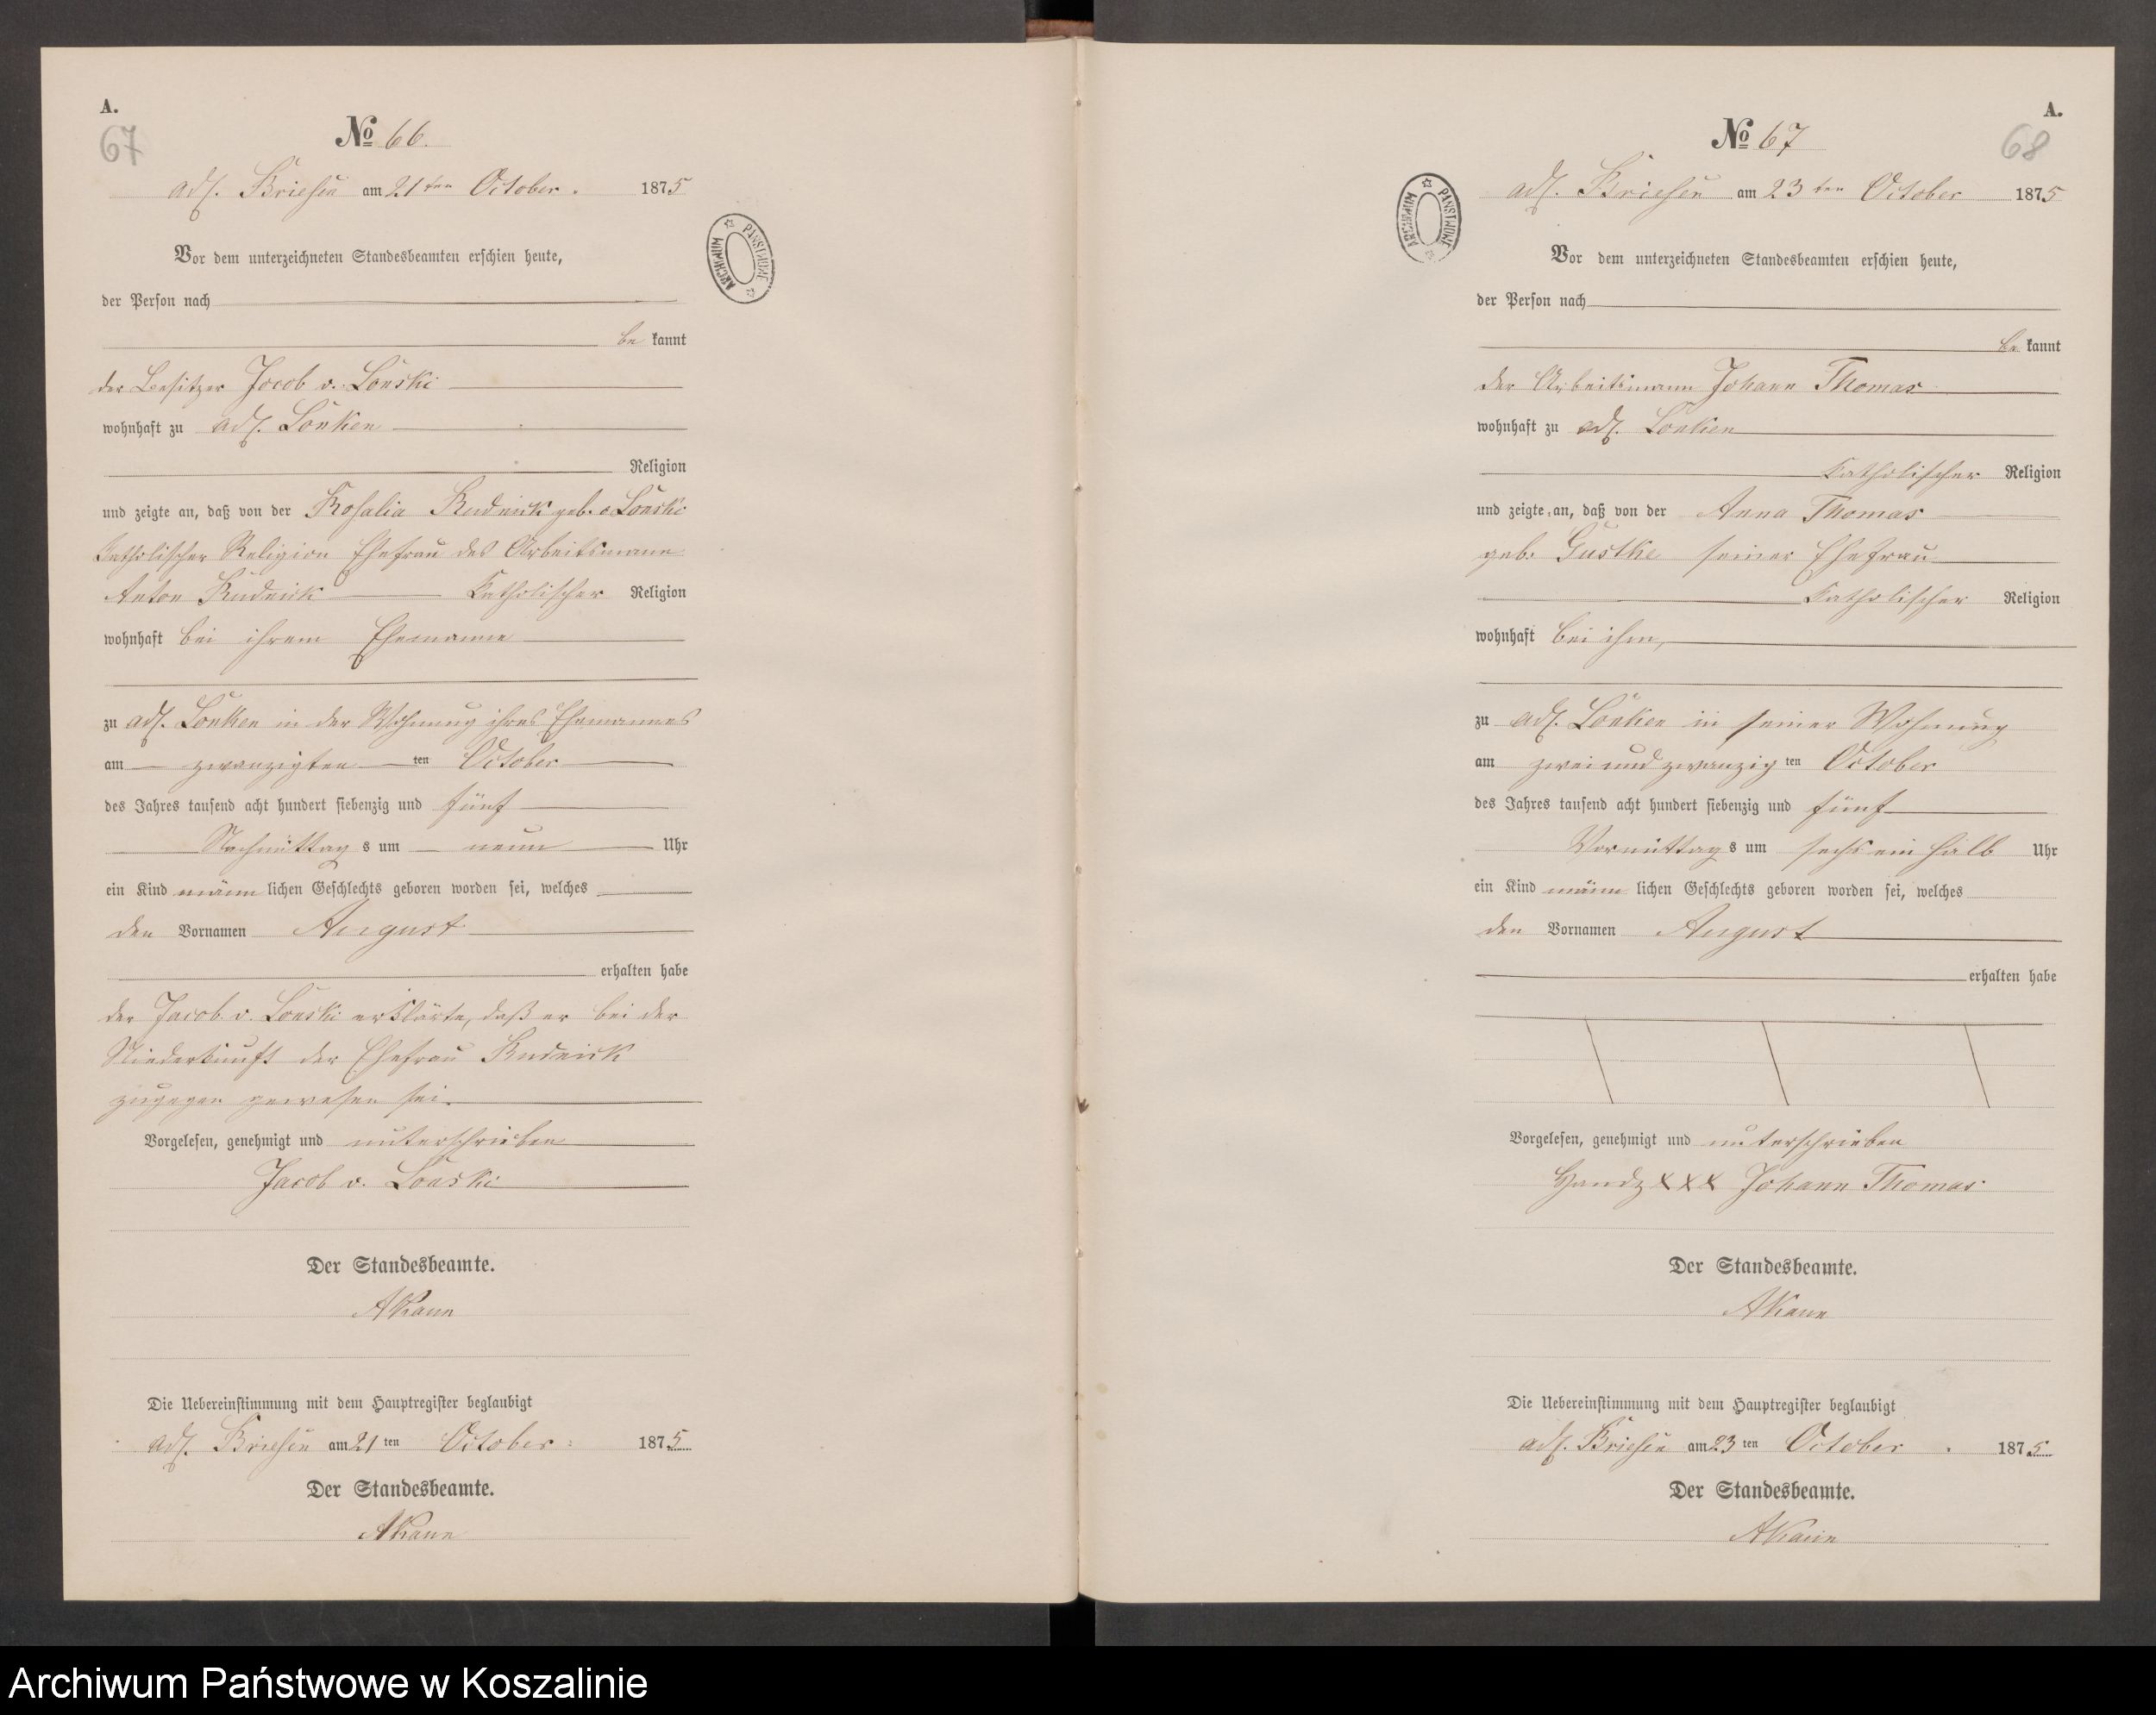 A.
67
No 66.
adl. Briesen am 21ten October. 1875
Vor dem unterzeichneten Standesbeamten erschien heute,
der Person nach
be kannt
der Besitzer Jacob v. Lonski
wohnhaft zu adl. Lonken
Religion
und zeigte an, daß von der Rosalia Rudnick geb. v. Lonski
Katholischer Religion Ehefrau des Arbeitsmann
Anton Rudnick Katholischer Religion
wohnhaft bei ihrem Ehemanne
zu adl. Lonken in der Wohnung ihres Ehemannes
am zwanzigten ten October
des Jahres tausend acht hundert siebenzig und fünf
Nachmittag s um neun Uhr
ein Kind männ lichen Geschlechts geboren worden sei, welches
den Vornamen August
erhalten habe
der Jacob v. Lonski erklärte, daß er bei der
Niederkunft der Ehefrau Rudnick
zugegen gewesen sei.
Vorgelesen, genehmigt und unterschrieben
Jacob v. Lonski
Der Standesbeamte.
AKann
Die Uebereinstimmung mit dem Hauptregister beglaubigt
adl. Briesen am 21 ten October 1875
Der Standesbeamte.
AKann
ARCHIWUM PAŃSTWOWE
A.
68
No 67
adl. Briesen am 23 ten October 1875
ARCHIWUM PAŃSTWOWE
Vor dem unterzeichneten Standesbeamten erschien heute,
der Person nach
be kannt
der Arbeitsmann Johann Thomas
wohnhaft zu adl. Lonken
Katholischer Religion
und zeigte an, daß von der Anna Thomas
geb. Gustke seiner Ehefrau
Katholischer Religion
wohnhaft bei ihm,
zu adl. Lonken in seiner Wohnung
am zwei und zwanzig ten October
des Jahres tausend acht hundert siebenzig und fünf
Vormittag s um sechs ein halb Uhr
ein Kind männ lichen Geschlechts geboren worden sei, welches
den Vornamen August
erhalten habe
Vorgelesen, genehmigt und unterschrieben
Handz XXX Johann Thomas
Der Standesbeamte.
AKann
Die Uebereinstimmung mit dem Hauptregister beglaubigt
adl. Briesen am 23 ten October . 1875
Der Standesbeamte.
AKann
Archiwum Państwowe w Koszalinie